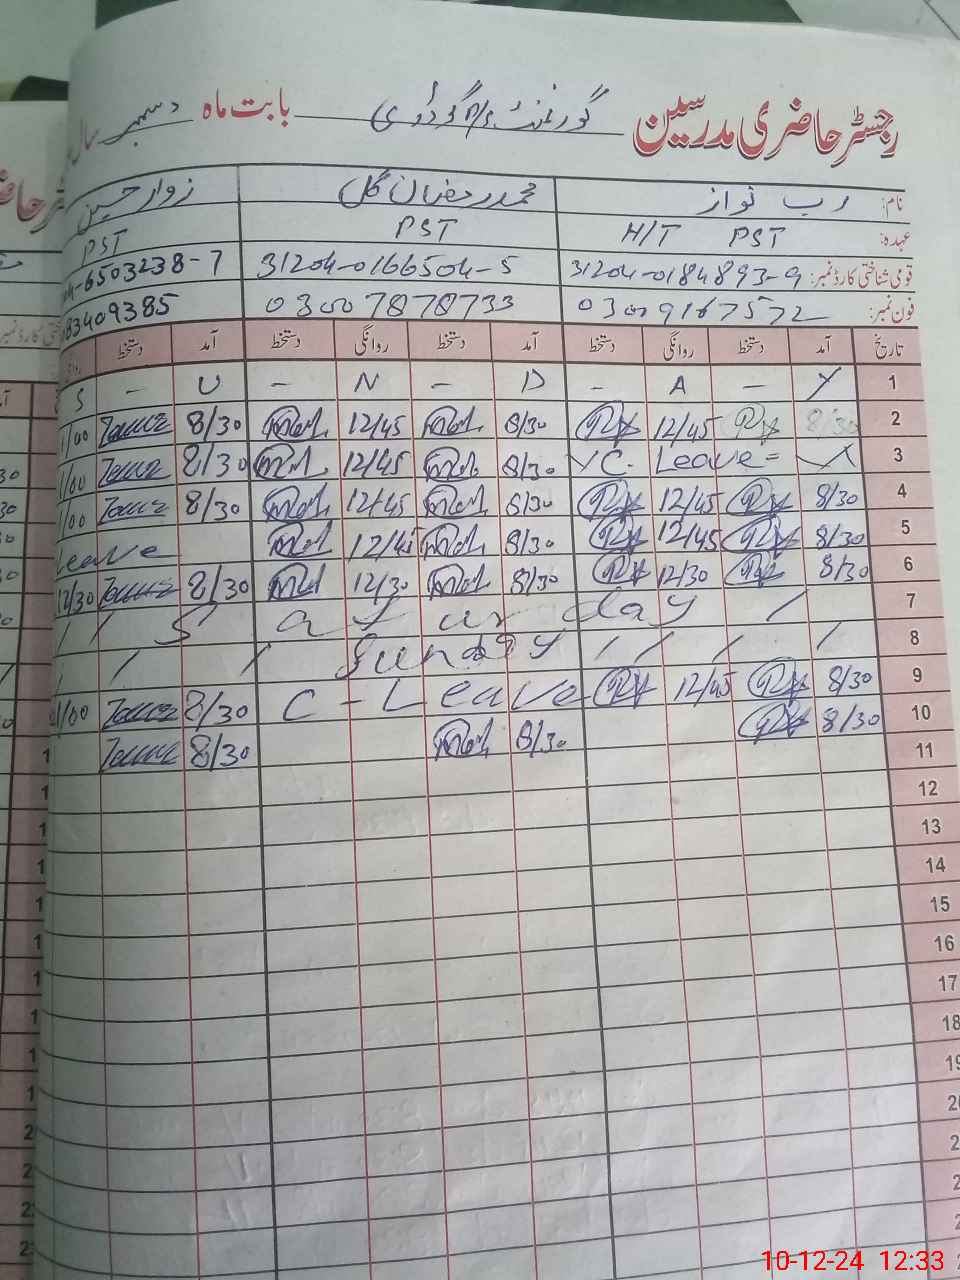 رجسٹر حاضری مدرسین گورنمنٹ بابت ماہ دسمبر سال
نام: رب نواز محمد رمضان گل زوار حسین
عہدہ: H/T PST PST PST
قومی شناختی کارڈ نمبر: 31204-0184893-9 31204-0166504-5 04-6503238-7
فون نمبر: 03009167572 03007878733 83409385
تاریخ آمد دستخط روانگی دستخط آمد دستخط روانگی دستخط آمد دستخط
1 S - U - N - D - A - Y
2 8/30 12/45 8/30 12/45 8/30 1/00
3 C. Leave 8/30 12/45 8/30 1/00
4 8/30 12/45 8/30 12/45 8/30 1/00
5 8/30 12/45 8/30 12/45 Leave
6 8/30 12/30 8/30 12/30 8/30 12/30
7 / / S at ur day /
8 / / / Sunday / / / /
9 8/30 12/45 C - Leave 8/30 1/00
10 8/30 8/30 8/30
11
12
13
14
15
16
17
18
10-12-24 12:33